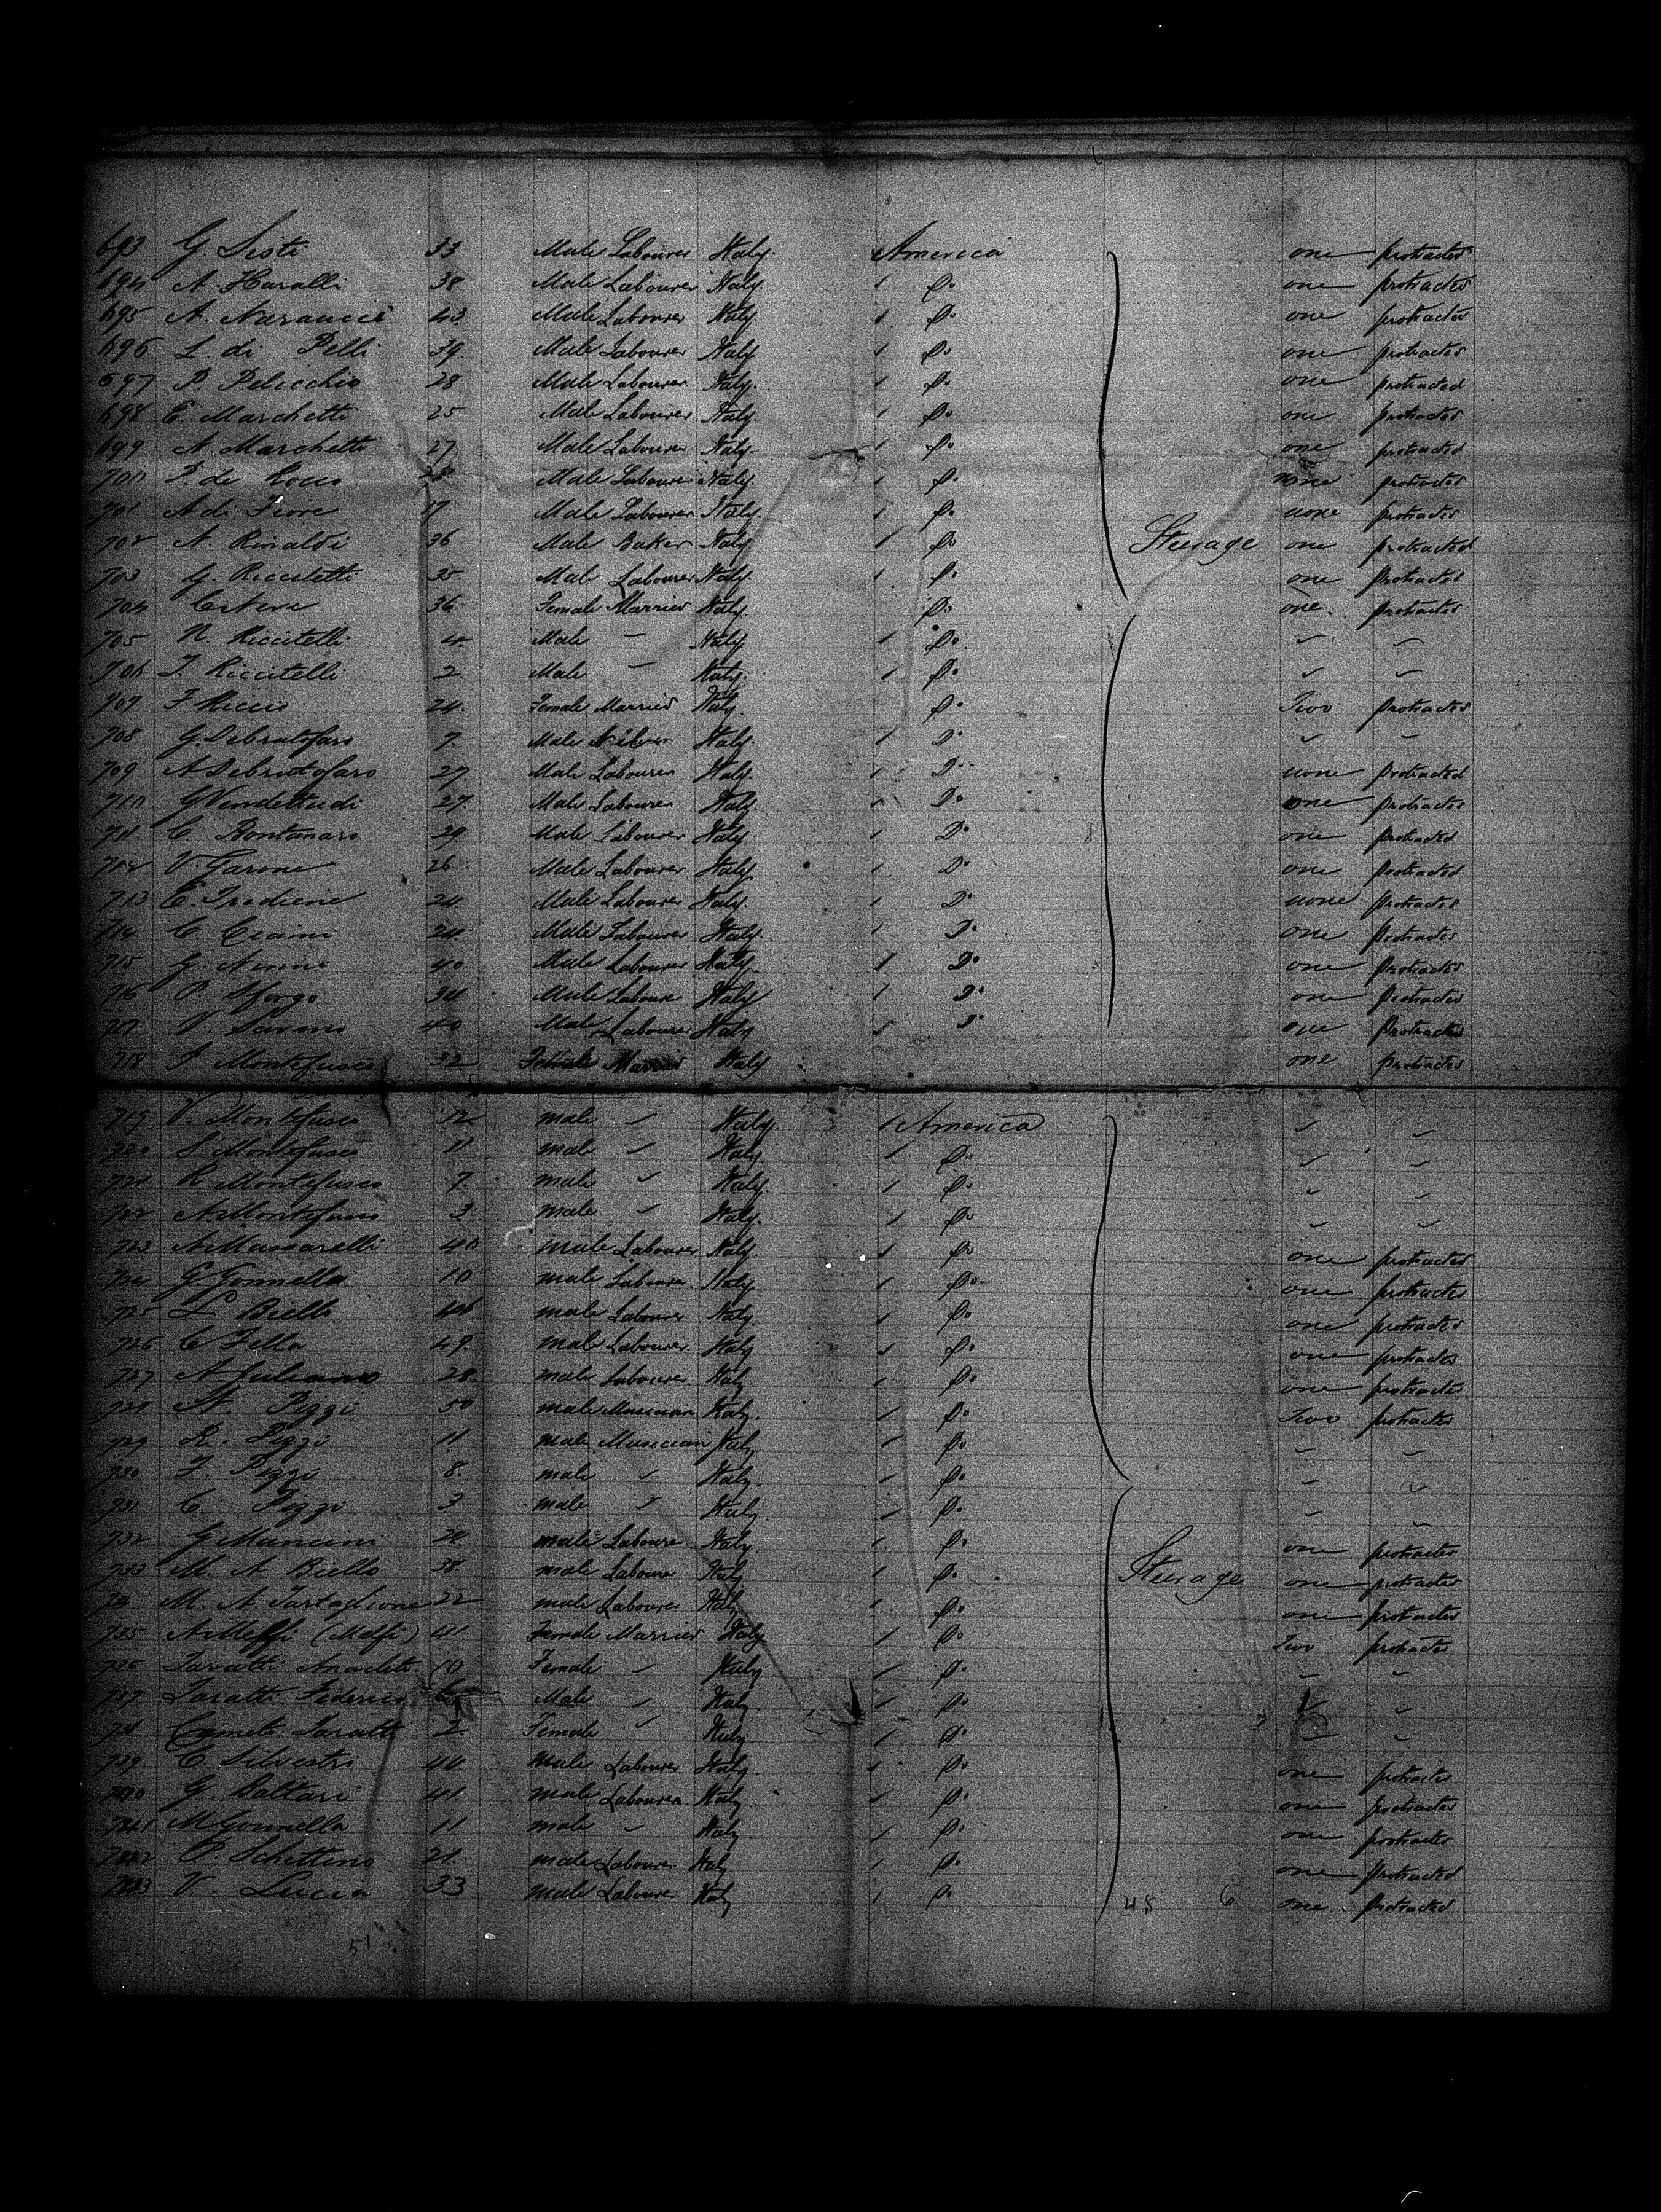 693 G. Sisti 33 Male Labourer Italy. America one protracted
694 A. Haralli 38 Male Labourer Italy. Do one protracted
695 A. Naraucci 43 Male Labourer Italy Do one protracted
696 L. di Pelli 39. Male Labourer Italy Do one protracted
697 P. Pelicchio 28 Male Labourer Italy. Do one protracted
698 E. Marchetti 25 Male Labourer Italy Do one protracted
699 A. Marchetti 27 Male Labourer Italy. Do one protracted
700 P. de Rocco Male Labourer Italy. Do none protracted
701 A di Fiore 17 Male Labourer Italy. Do none protracted
702 A. Rinaldi 36 Male Baker Italy Do Steerage one protracted
703 G. Riccitelli 35 Male Labourer Italy. Do one protracted
704 36 Female Married Italy. Do one protracted
705 N. Riccitelli 4. Male Italy Do
706 I. Riccitelli 2 Male Italy. Do
707 F Ricci 24. Female Married Italy. Do Two protracted
708 G. Debratofaro 7. Male Italy. Do
709 A Debratofaro 27 Male Labourer Italy. Do none protracted
710 27. Male Labourer Italy. Do one protracted
711 C. Bontanaro 29. Male Labourer Italy Do one protracted
712 V. Garone 26 Male Labourer Italy Do one protracted
713 E. 24 Male Labourer Italy. Do none protracted
714 C. Ciaini 24 Male Labourer Italy. Do one protracted
715 G. 40 Male Labourer Italy Do one protracted
716 P. Sforgo 34 Male Labourer Italy Do one protracted
717 V. Savano 40 Male Labourer Italy Do one protracted
718 F Montefusco 32 Female Married Italy one protracted
719 V. Montefusco 12 male Italy. America
720 S. Montefusco 11 male Italy Do
721 R. Montefusco 7. male Italy. Do
722 A. Montefusco 3 male Italy. Do
723 A. Massarelli 40 male Labourer Italy. Do one protracted
724 G Gonnella 10 male Labourer Italy. Do one protracted
725 L Biello male Labourer Italy. Do one protracted
726 C Fella 49. male Labourer Italy Do one protracted
727 A Juliano 28. male Labourer Italy Do one protracted
728 A. Pizzi 50 male Musician Italy. Do Two protracted
729 R. Pizzi 11 male Musician Italy Do
730 F. Pizzi 8. male Italy. Do
731 C. Pizzi 3 male Italy. Do
732 G Mancini 28 male Labourer Italy Do one protracted
733 M. A Biello 38. male Labourer Italy Do Steerage one protracted
734 M. A Tartaglione 22 male Labourer Italy Do one protracted
735 A. Melfi (Melfi) 41 Female Married Italy Do Two protracted
736 Taratti 10 Female Italy Do
737 Taratti Federico 6 Male Italy Do
738 Taratti 2. Female Italy Do
739. C. Silvestri 44. Male Labourer Italy. Do one protracted
740 G. Battari 41. male Labourer Italy Do one protracted
741 M Gonnella 11 male Italy. Do one protracted
742 P Schettino 21. male Labourer Italy Do one protracted
743 V. Lucia 33 male Labourer Italy Do one protracted
45 6
51